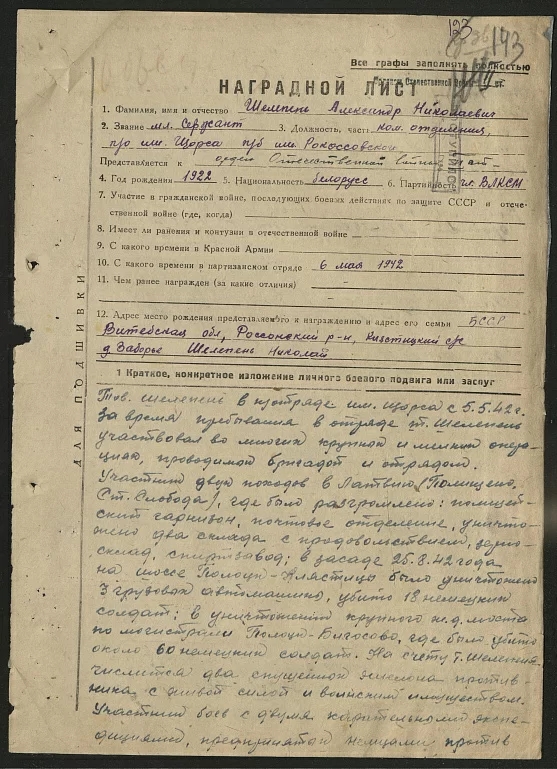 193
193
Все графы заполнять полностью
НАГРАДНОЙ ЛИСТ
1. Фамилия, имя и отчество Шелепень Александр Николаевич
2. Звание мл. Сержант 3. Должность, часть ком. отделения,
п/о им. Щорса п/б им. Рокоссовского
Представляется к орден Отечественной войны
4. Год рождения 1922 5. Национальность белорусс 6. Партийность чл. ВЛКСМ
7. Участие в гражданской войне, последующих боевых действиях по защите СССР и отече-
ственной войне (где, когда)
8. Имеет ли ранения и контузии в отечественной войне
9. С какого времени в Красной Армии
10. С какого времени в партизанском отряде 6 мая 1942
11. Чем ранее награжден (за какие отличия)
12. Адрес место рождения представляемого к награждению и адрес его семьи БССР
Витебская обл, Россонский р-н, Клястицкий с/с
д Заборье Шелепень Николай
1 Краткое, конкретное изложение личного боевого подвига или заслуг
ДЛЯ ПОДШИВКИ
Тов. Шелепень в п/отряде им. Щорса с 5.5.42 г.
За время пребывания в отряде т. Шелепень
участвовал во многих крупной и мелких опера-
циях, проводимой бригадой и отрядом.
Участник двух походов в Латвию
Ст. Слобода), где был разгромлено: полицей-
ский гарнизон, почтовое отделение, уничто-
жено два склада с продовольствием, зерно-
склад, спиртзавод; в засаде 25.8.42 года
на шоссе Полоцк-Клястицы было уничтожено
3 грузовых автомашины, убито 18 немецких
солдат; в уничтожении крупного ж.д. моста
по магистрали Полоцк-Бигосово, где было убито
около 60 немецких солдат. На счету т. Шелепень
числится два спущенных эшелона против-
ника с живой силой и воинским имуществом.
Участник боев с двумя карательными экспе-
дициями, предпринятой немцами против